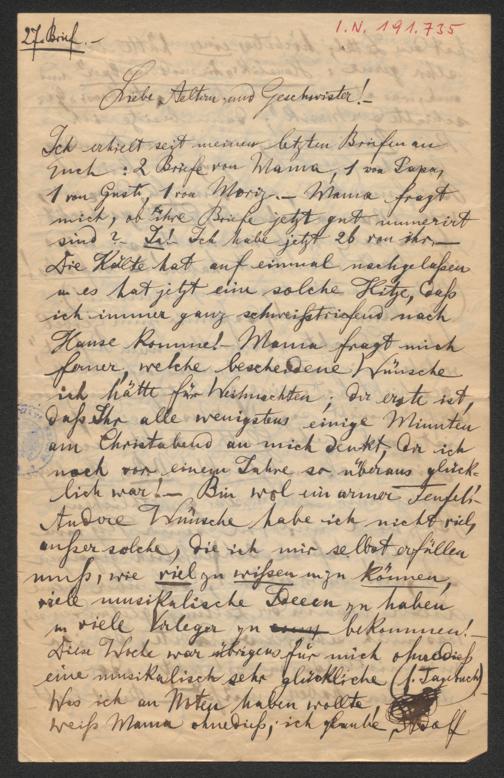 I.N. 191.735
27. Brief. –
Liebe Aeltern und Geschwister! –
Ich erhielt seit meinen letzten Briefen an
Euch : 2 Briefe von Mama, 1 von Papa,
1 von Gusti, 1 von Moriz. – Mama fragt
mich, ob ihre Briefe jetzt gut numerirt
sind? – Ja! Ich habe jetzt 26 von ihr. –
Die Kälte hat auf einmal nachgelassen
u es hat jetzt eine solche Hitze, dass
ich immer ganz schweißtriefend nach
Hause komme! – Mama fragt mich
ferner, welche bescheidene Wünsche
ich hätte für Weihnachten; der erste ist,
daß Ihr alle wenigstens einige Minuten
am Christabend an mich denkt, der ich
noch vor einem Jahre so überaus glück-
lich war! – Bin wol ein armer Teufel!
Andere Wünsche habe ich nicht viel,
außer solche, die ich mir selbst erfüllen
muß, wie viel zu wissen u zu können,
viele musikalische Ideen zu haben
u viele Verleger zu bekommen! –
Diese Woche war übrigens für mich ohnedieß
eine musikalisch sehr glückliche (s. Tagebuch)
Was ich an Noten haben wollte,
weiß Mama ohnedieß; ich glaube,